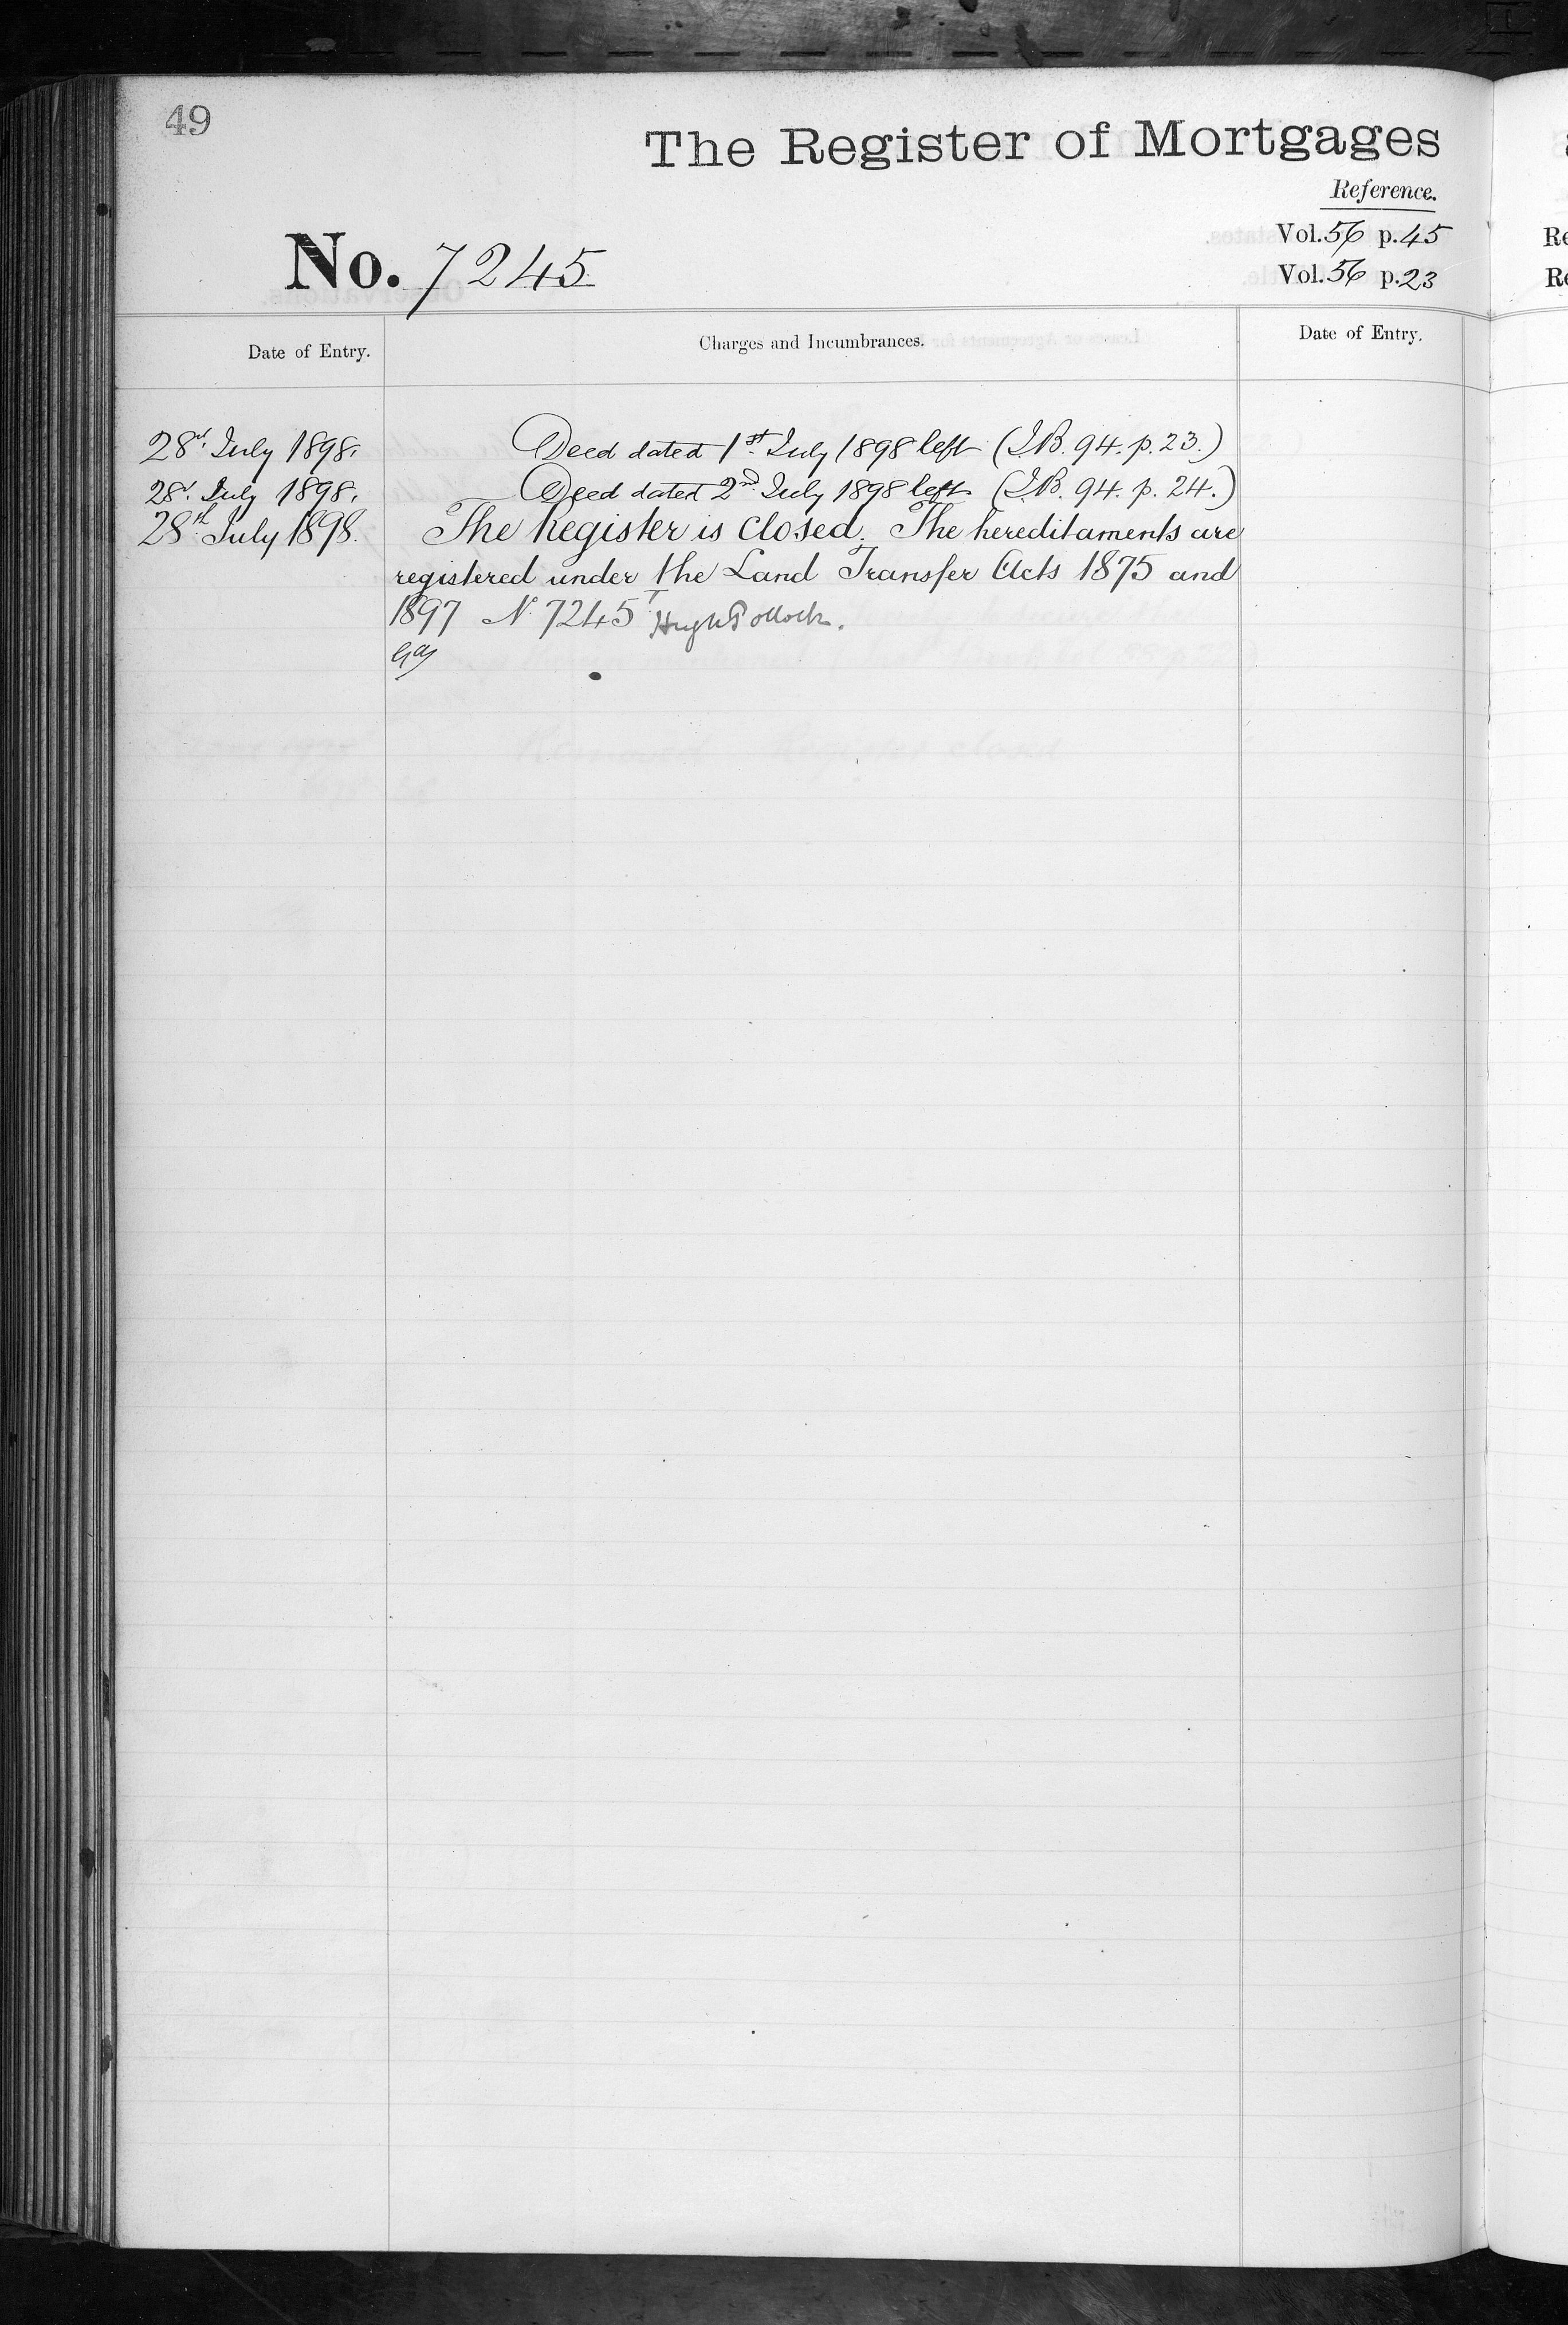 49
The Register of Mortgages
Reference.
Vol. 56 p. 45
No. 7245
Vol. 56 p. 23
Date of Entry.
Charges and Incumbrances.
Date of Entry.
28 July 1898. Deed dated 1st July 1898 left (I.B. 94. p. 23.)
28 July 1898. Deed dated 2nd July 1898 left (I.B. 94. p. 24.)
28th July 1898. The Register is closed. The hereditaments are
registered under the Land Transfer Acts 1875 and
1897 No 7245 Hugh Pollock.
Re
Re